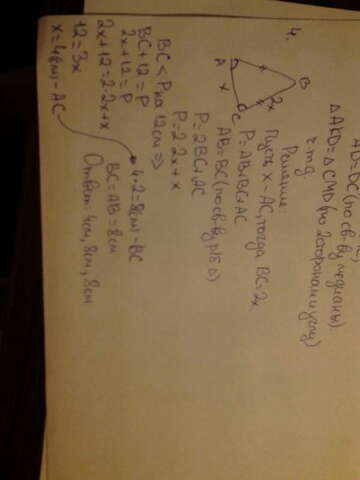 AD=DC (по св-ву медианы)
△AKD=△CMD (по 2 сторонам и углу)
ч.т.д.
4.
B
A
C
2x
x
Решение:
Пусть x - AC, тогда BC=2x
P=AB+BC+AC
AB=BC (по св-ву р/б △)
P=2BC+AC
P=2·2x+x
BC < P на 12см ⇒
BC+12=P
2x+12=P
2x+12=2·2x+x
12=3x
x=4(см)-AC
4·2=8(см)-BC
BC=AB=8см
Ответ: 4см, 8см, 8см